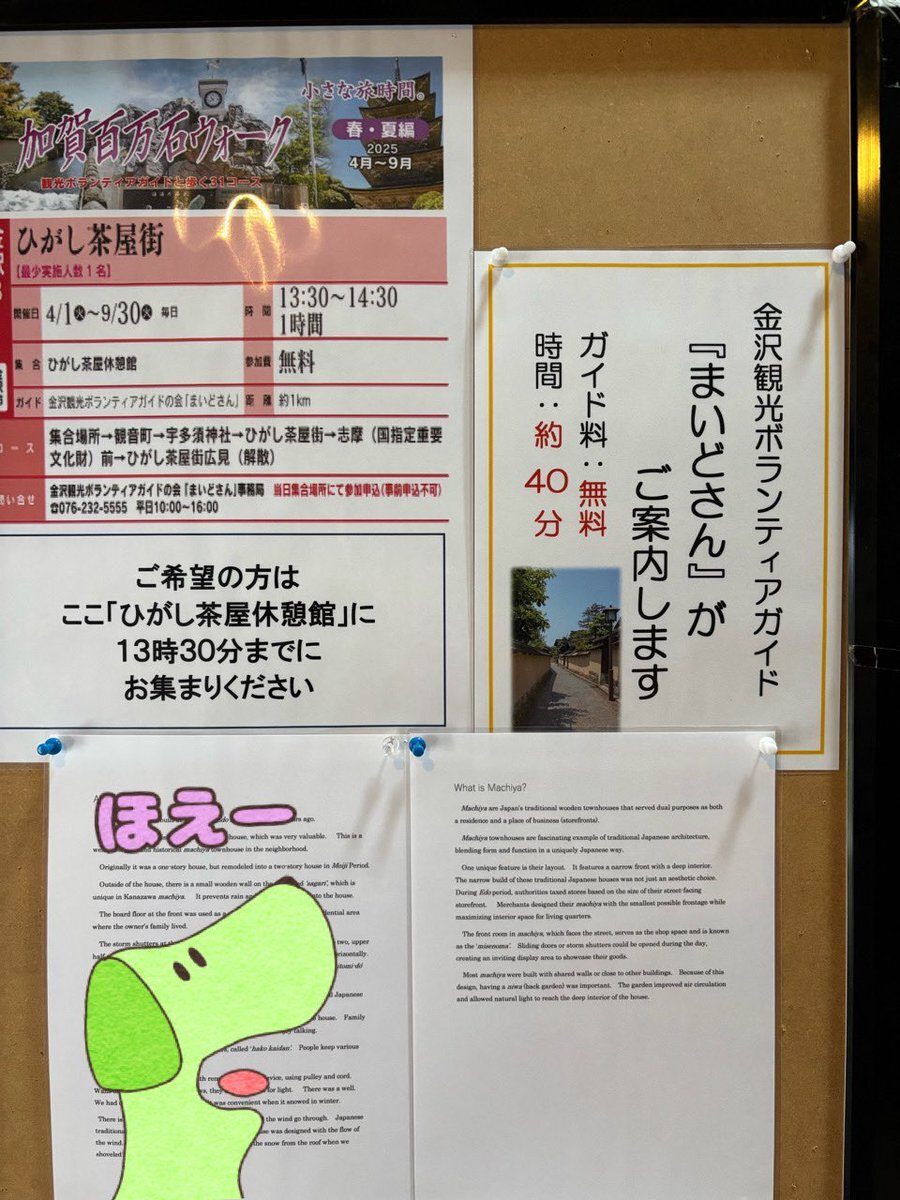 小さな旅時間。
加賀百万石ウォーク
春・夏編
2025
4月〜9月
観光ボランティアガイドと歩く31コース
ひがし茶屋街
[最少実施人数1名]
開催日 4/1火〜9/30火 毎日
時間 13:30〜14:30
1時間
集合 ひがし茶屋休憩館
参加費 無料
ガイド 金沢観光ボランティアガイドの会「まいどさん」
距離 約1km
コース 集合場所→観音町→宇多須神社→ひがし茶屋街→志摩（国指定重要
文化財）前→ひがし茶屋街広見（解散）
問い合せ 金沢観光ボランティアガイドの会「まいどさん」事務局 当日集合場所にて参加申込(事前申込不可)
☎076-232-5555 平日10:00〜16:00
ご希望の方は
ここ「ひがし茶屋休憩館」に
13時30分までに
お集まりください
金沢観光ボランティアガイド
『まいどさん』が
ご案内します
ガイド料：無料
時間：約40分
ほえー
ago.
house, which was very valuable. This is a
historical machiya townhouse in the neighborhood.
Originally it was a one-story house, but remodeled into a two-story house in Meiji Period.
Outside of the house, there is a small wooden wall on the 'sagari', which is
unique in Kanazawa machiya. It prevents rain to the house.
The board floor at the front was used as a residential area
where the owner's family lived.
The storm shutters at two, upper
half horizontally.
Japanese
house. Family
talking.
called 'hako kaidan'. People keep various
service, using pulley and cord.
for light. There was a well.
We had was convenient when it snowed in winter.
There is the wind go through. Japanese
was designed with the flow of
the wind. the snow from the roof when we
shoveled
What is Machiya?
Machiya are Japan's traditional wooden townhouses that served dual purposes as both
a residence and a place of business (storefronts).
Machiya townhouses are fascinating example of traditional Japanese architecture,
blending form and function in a uniquely Japanese way.
One unique feature is their layout. It features a narrow front with a deep interior.
The narrow build of these traditional Japanese houses was not just an aesthetic choice.
During Edo period, authorities taxed stores based on the size of their street-facing
storefront. Merchants designed their machiya with the smallest possible frontage while
maximizing interior space for living quarters.
The front room in machiya, which faces the street, serves as the shop space and is known
as the 'misenoma'. Sliding doors or storm shutters could be opened during the day,
creating an inviting display area to showcase their goods.
Most machiya were built with shared walls or close to other buildings. Because of this
design, having a niwa (back garden) was important. The garden improved air circulation
and allowed natural light to reach the deep interior of the house.